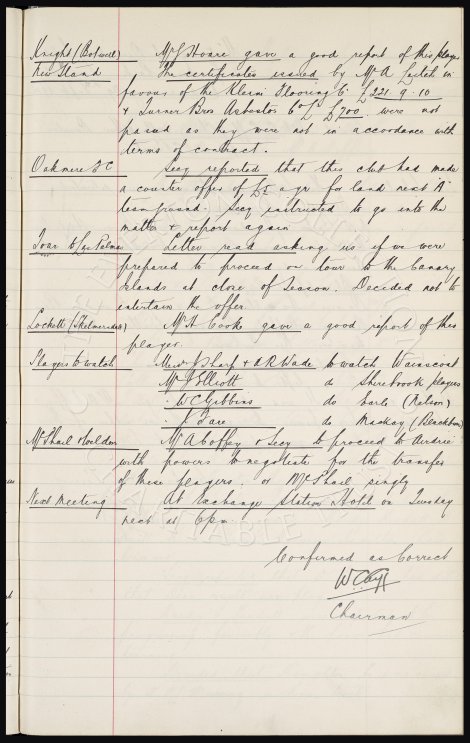 Knight (Botwell) Mr J Hoare gave a good report of this player
New Stand The certificates issued by Mr A Leitch in
favour of the Kleine Flooring Co £221.9.10
& Turner Bros Asbestos Co Ld £700 were not
passed as they were not in accordance with
terms of contract.
Oakmere F C Secy reported that this club had made
a counter offer of £5 a yr for land next "A"
team ground. Secy instructed to go into the
matter & report again
Tour to Las Palmas Letter read asking us if we were
prepared to proceed on tour to the Canary
Islands at close of Season. Decided not to
entertain the offer
Lockett (Skelmersdale) Mr H Cook gave a good report of this
player.
Players to watch Messrs Sharp & A R Wade to watch
Mr Elliott do Shirebrook players
" W C Gibbins do Earle (Nelson)
" J Fare do Mackay (Blackburn)
McPhail & Weldon Mr A Coffey & Secy to proceed to Airdrie
with powers to negotiate for the transfer
of these players, or McPhail singly
Next Meeting At Exchange Station Hotel on Tuesday
next at 6pm.
Confirmed as Correct
W C Cuff
Chairman